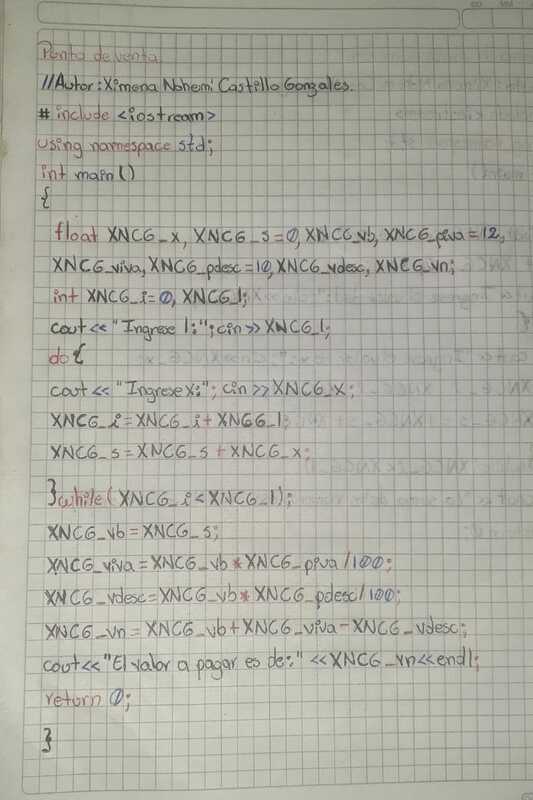 Punto de venta
//Autor: Ximena Nohemi Castillo Gonzales.
# include <iostream>
using namespace std;
int main()
{
float XNCG_x, XNCG_s=0, XNCG_vb, XNCG_piva=12,
XNCG_viva, XNCG_pdesc=10, XNCG_vdesc, XNCG_vn;
int XNCG_i=0, XNCG_l;
cout<<"Ingrese l:"; cin>>XNCG_l;
do{
cout<<"Ingrese x:"; cin>>XNCG_x;
XNCG_i=XNCG_i+XNCG_l;
XNCG_s=XNCG_s+XNCG_x;
}while(XNCG_i<XNCG_l);
XNCG_vb=XNCG_s;
XNCG_viva=XNCG_vb*XNCG_piva/100;
XNCG_vdesc=XNCG_vb*XNCG_pdesc/100;
XNCG_vn=XNCG_vb+XNCG_viva-XNCG_vdesc;
cout<<"El valor a pagar es de:"<<XNCG_vn<<endl;
return 0;
}